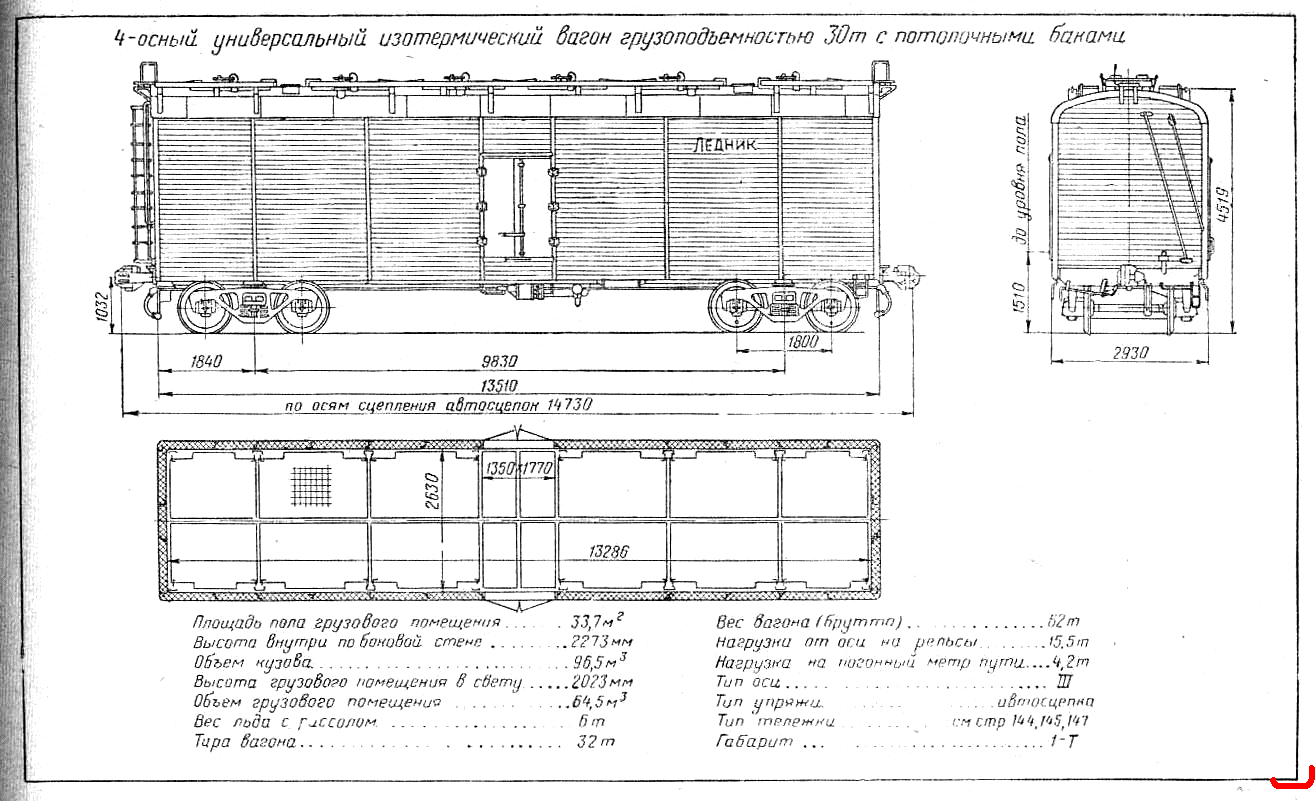 4-осный универсальный изотермический вагон грузоподъемностью 30т с потолочными баками
Ледник
до уровня пола
4519
1032
1510
1840
9830
1800
2930
13510
по осям сцепления автосцепок 14730
1350×1770
2630
13286
Площадь пола грузового помещения...... 33,7м²
Высота внутри по боковой стене ......... 2273мм
Объем кузова......................... 96,5м³
Высота грузового помещения в свету ......2023мм
Объем грузового помещения ............ 64,5м³
Вес льда с рассолом ................... 6т
Тара вагона......................... 32т
Вес вагона (брутто) .............. 62т
Нагрузка от оси на рельсы ...... 15,5т
Нагрузка на погонный метр пути....4,2т
Тип оси......................... III
Тип упряжи ............ автосцепка
Тип тележки ......... см стр 144,145,147
Габарит ......................... 1-Т